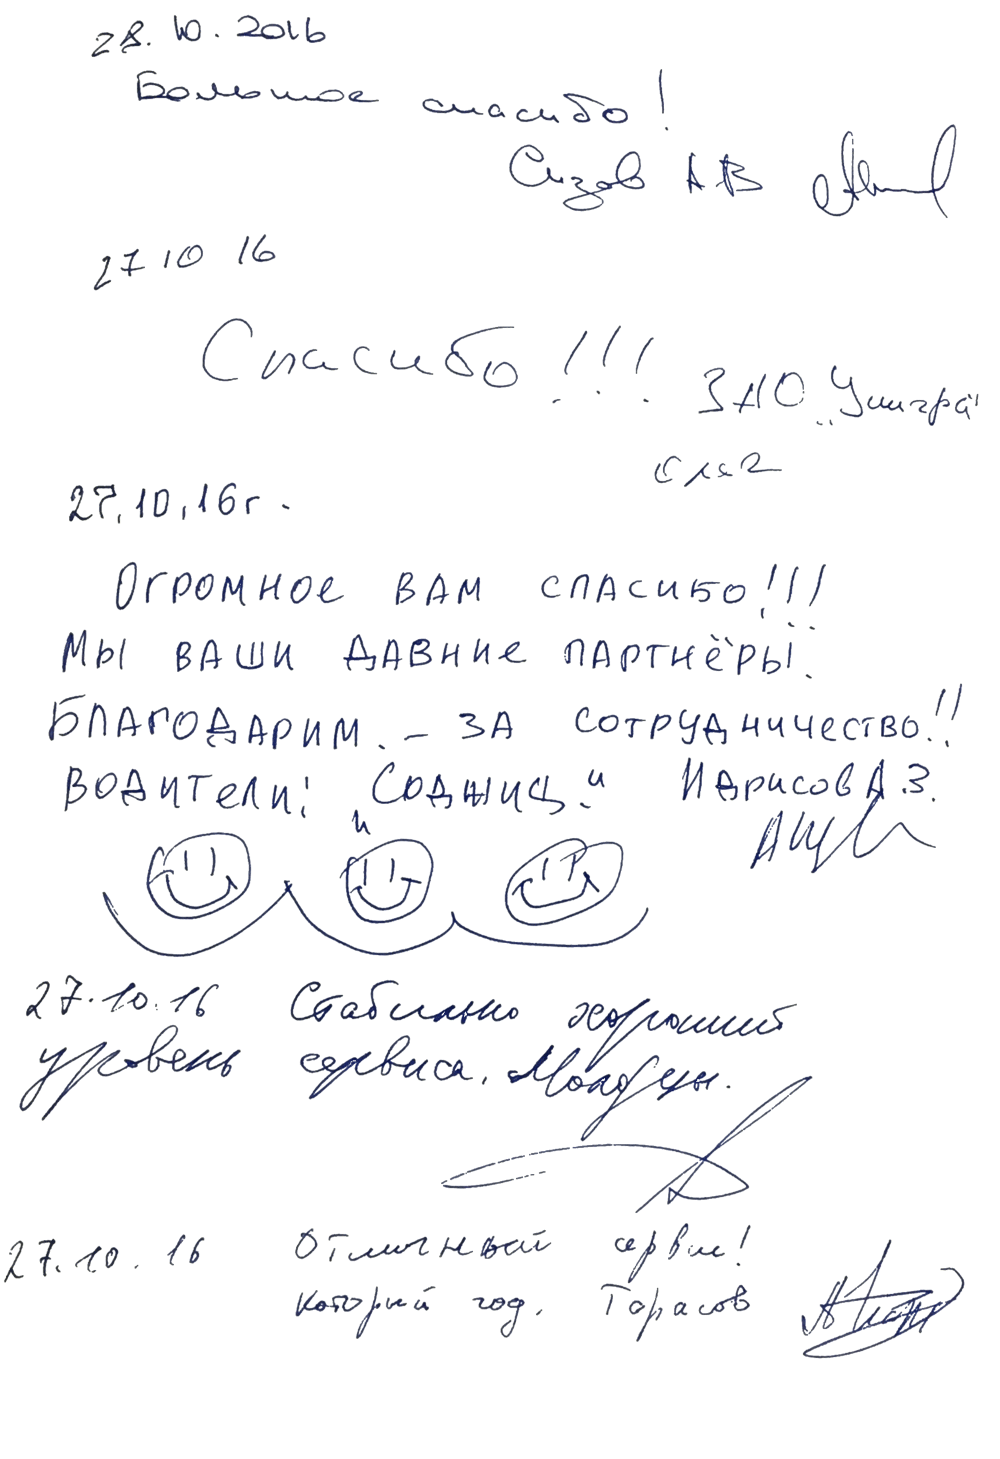 28.10.2016
Большое спасибо!
Сизов АВ
27 10 16
Спасибо!!! ЗАО „Унигра"
27.10.16г.
Огромное вам спасибо!!!
Мы ваши давние партнёры!
Благодарим. – за сотрудничество!!
водители: Идрисов А.З.
27.10.16 Стабильно хороший
уровень сервиса. Молодцы.
27.10.16 Отличный сервис!
который год. Тарасов